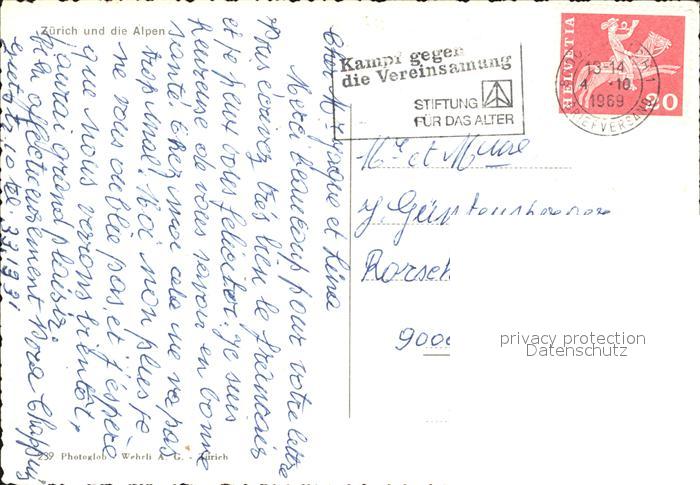 Zürich und die Alpen
Kampf gegen
die Vereinsamung
STIFTUNG
FÜR DAS ALTER
HELVETIA
20
13-14
4 -10
1969
BRIEFVERSAND
Cher M. et Lina
Merci beaucoup pour votre lettre
Vous écrivez très bien le français
et je peux vous féliciter. Je suis
heureuse de vous savoir en bonne
santé. Chez moi cela ne va pas
trop mal. Moi non plus je
ne vous oublie pas, et j'espère
que nous verrons bientôt,
j'aurai grand plaisir.
affectueusement Nora Chappuis
tel. 33 19 31
Mr et Mme
J.
Rorsch
900
privacy protection
Datenschutz
239 Photoglob - Wehrli A. G. - Zürich